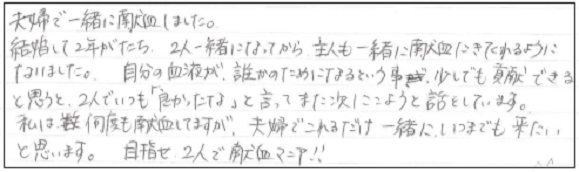 夫婦で一緒に献血しました。
結婚して2年がたち、2人一緒になってから、主人も一緒に献血にきてくれるように
なりました。 自分の血液が、誰かのためになるという事、少しでも貢献できる
と思うと、2人でいつも「良かったな」と言ってまた次にこようと話をしています。
私は、何度も献血してますが、夫婦でこれるだけ一緒に、いつまでも来たい
と思います。 目指せ、2人で献血マニア!!